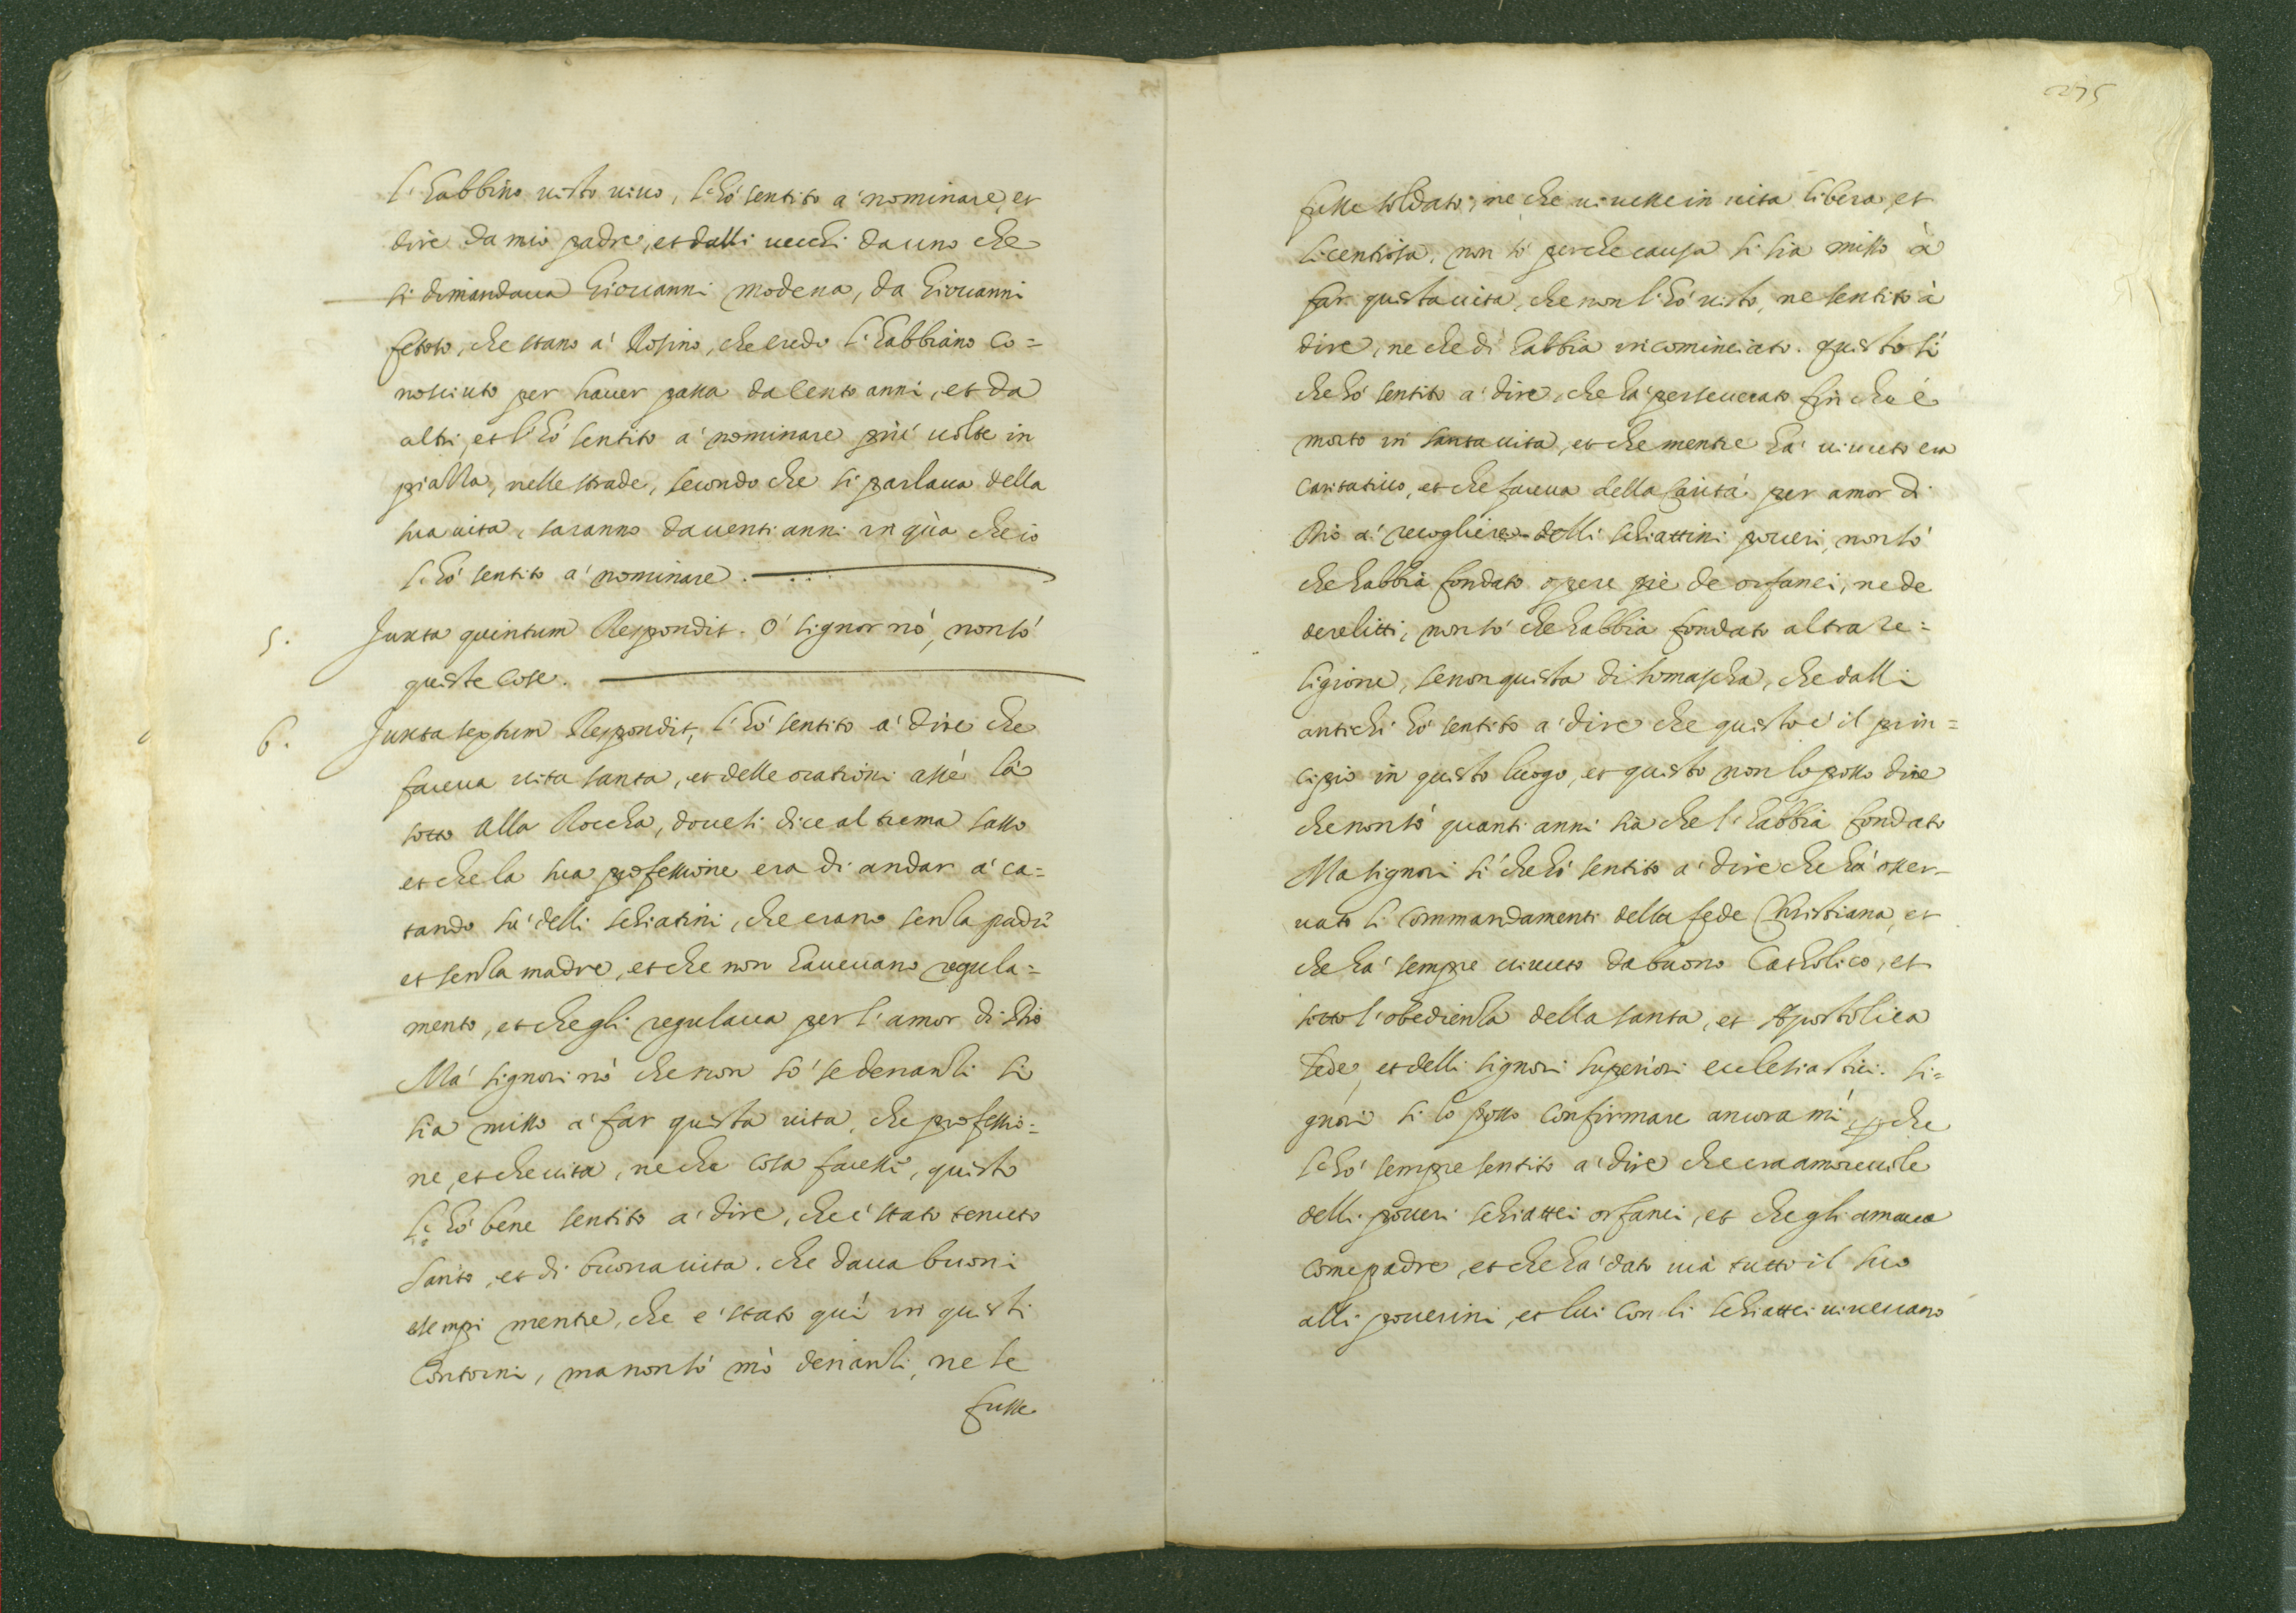 l'habbino uisto uiuo, l'hò sentito a' nominare, et
dire da mio padre, et dalli uecchi da uno che
si dimandaua Giouanni modena, da Giouanni
che stano a' Rosino, che credo l'habbiano co=
nosciuto per hauer passa da cento anni, et da
altri, et l'hò sentito a' nominare più uolte in
piazza, nelle strade, secondo che si parlaua della
sua uita, saranno da uenti anni in qùa che io
l'hò sentito a' nominare.
5. Juxta quintum Respondit. O' signor nò, non sò
queste cose.
6. Juxta septum Respondit, l'hò sentito a' dire che
faceua uita santa, et delle orationi assè là
sotto alla Roccha, doue si dice al trema sasso
et che la sua professione era di andar a' ca=
tando sù delli schiatini, che erano senza padri
et senza madre, et che non haueuano regula=
mento, et che gli regulaua per l'amor di Dio
Ma' signori nò che non sò se denanzi si
sia misso a' far questa uita, che professio=
ne, et che uita, ne che cosa facesse, questo
l'hò bene sentito a' dire, che è stato tenuto
Santo, et di buona uita. che daua buoni
esempi mentre, che è stato quì in questi
Contorni, ma non sò mò denanzi, ne se
fusse
275
fusse soldato, ne che uiuesse in uita libera, et
licentiosa, non sò perche causa si sia misso à
far questa uita, che non l'hò uisto, ne sentito à
dire, ne che dì habbia incominciato. questo sì
che hò sentito a' dire, che hà perseuerato fin che è
morto in santa uita, et che mentre hà uiuuto era
caritatiuo, et che faceua della Carità per amor di
Dio a' recogliere delli schiattini poueri, non sò
che habbia fondato opere piè de orfanci, ne de
derelitti, non sò che habbia fondato altra re=
ligione, se non questa di somascha, che dalli
antichi hò sentito a' dire che questo è il prin=
cipio in questo luogo, et questo non lo posso dire
che non sò quanti anni sia che l'habbia fondato
Ma signori sì che hò sentito a' dire che hà osser=
uato li commandamenti della fede Christiana, et
che hà sempre uiuuto da buono Catholico, et
sotto l'obedienza della santa, et Apostolica
sede, et delli signori superiori eclesiastici. si=
gnori sì lo posso confirmare ancora mì, perche
l'hò sempre sentito a' dire che era amoreuole
delli poueri schiattei orfanci, et che gli amaua
come padre, et che hà dato uià tutto il suo
alli pouerini, et lui con li schiattei uiueuano